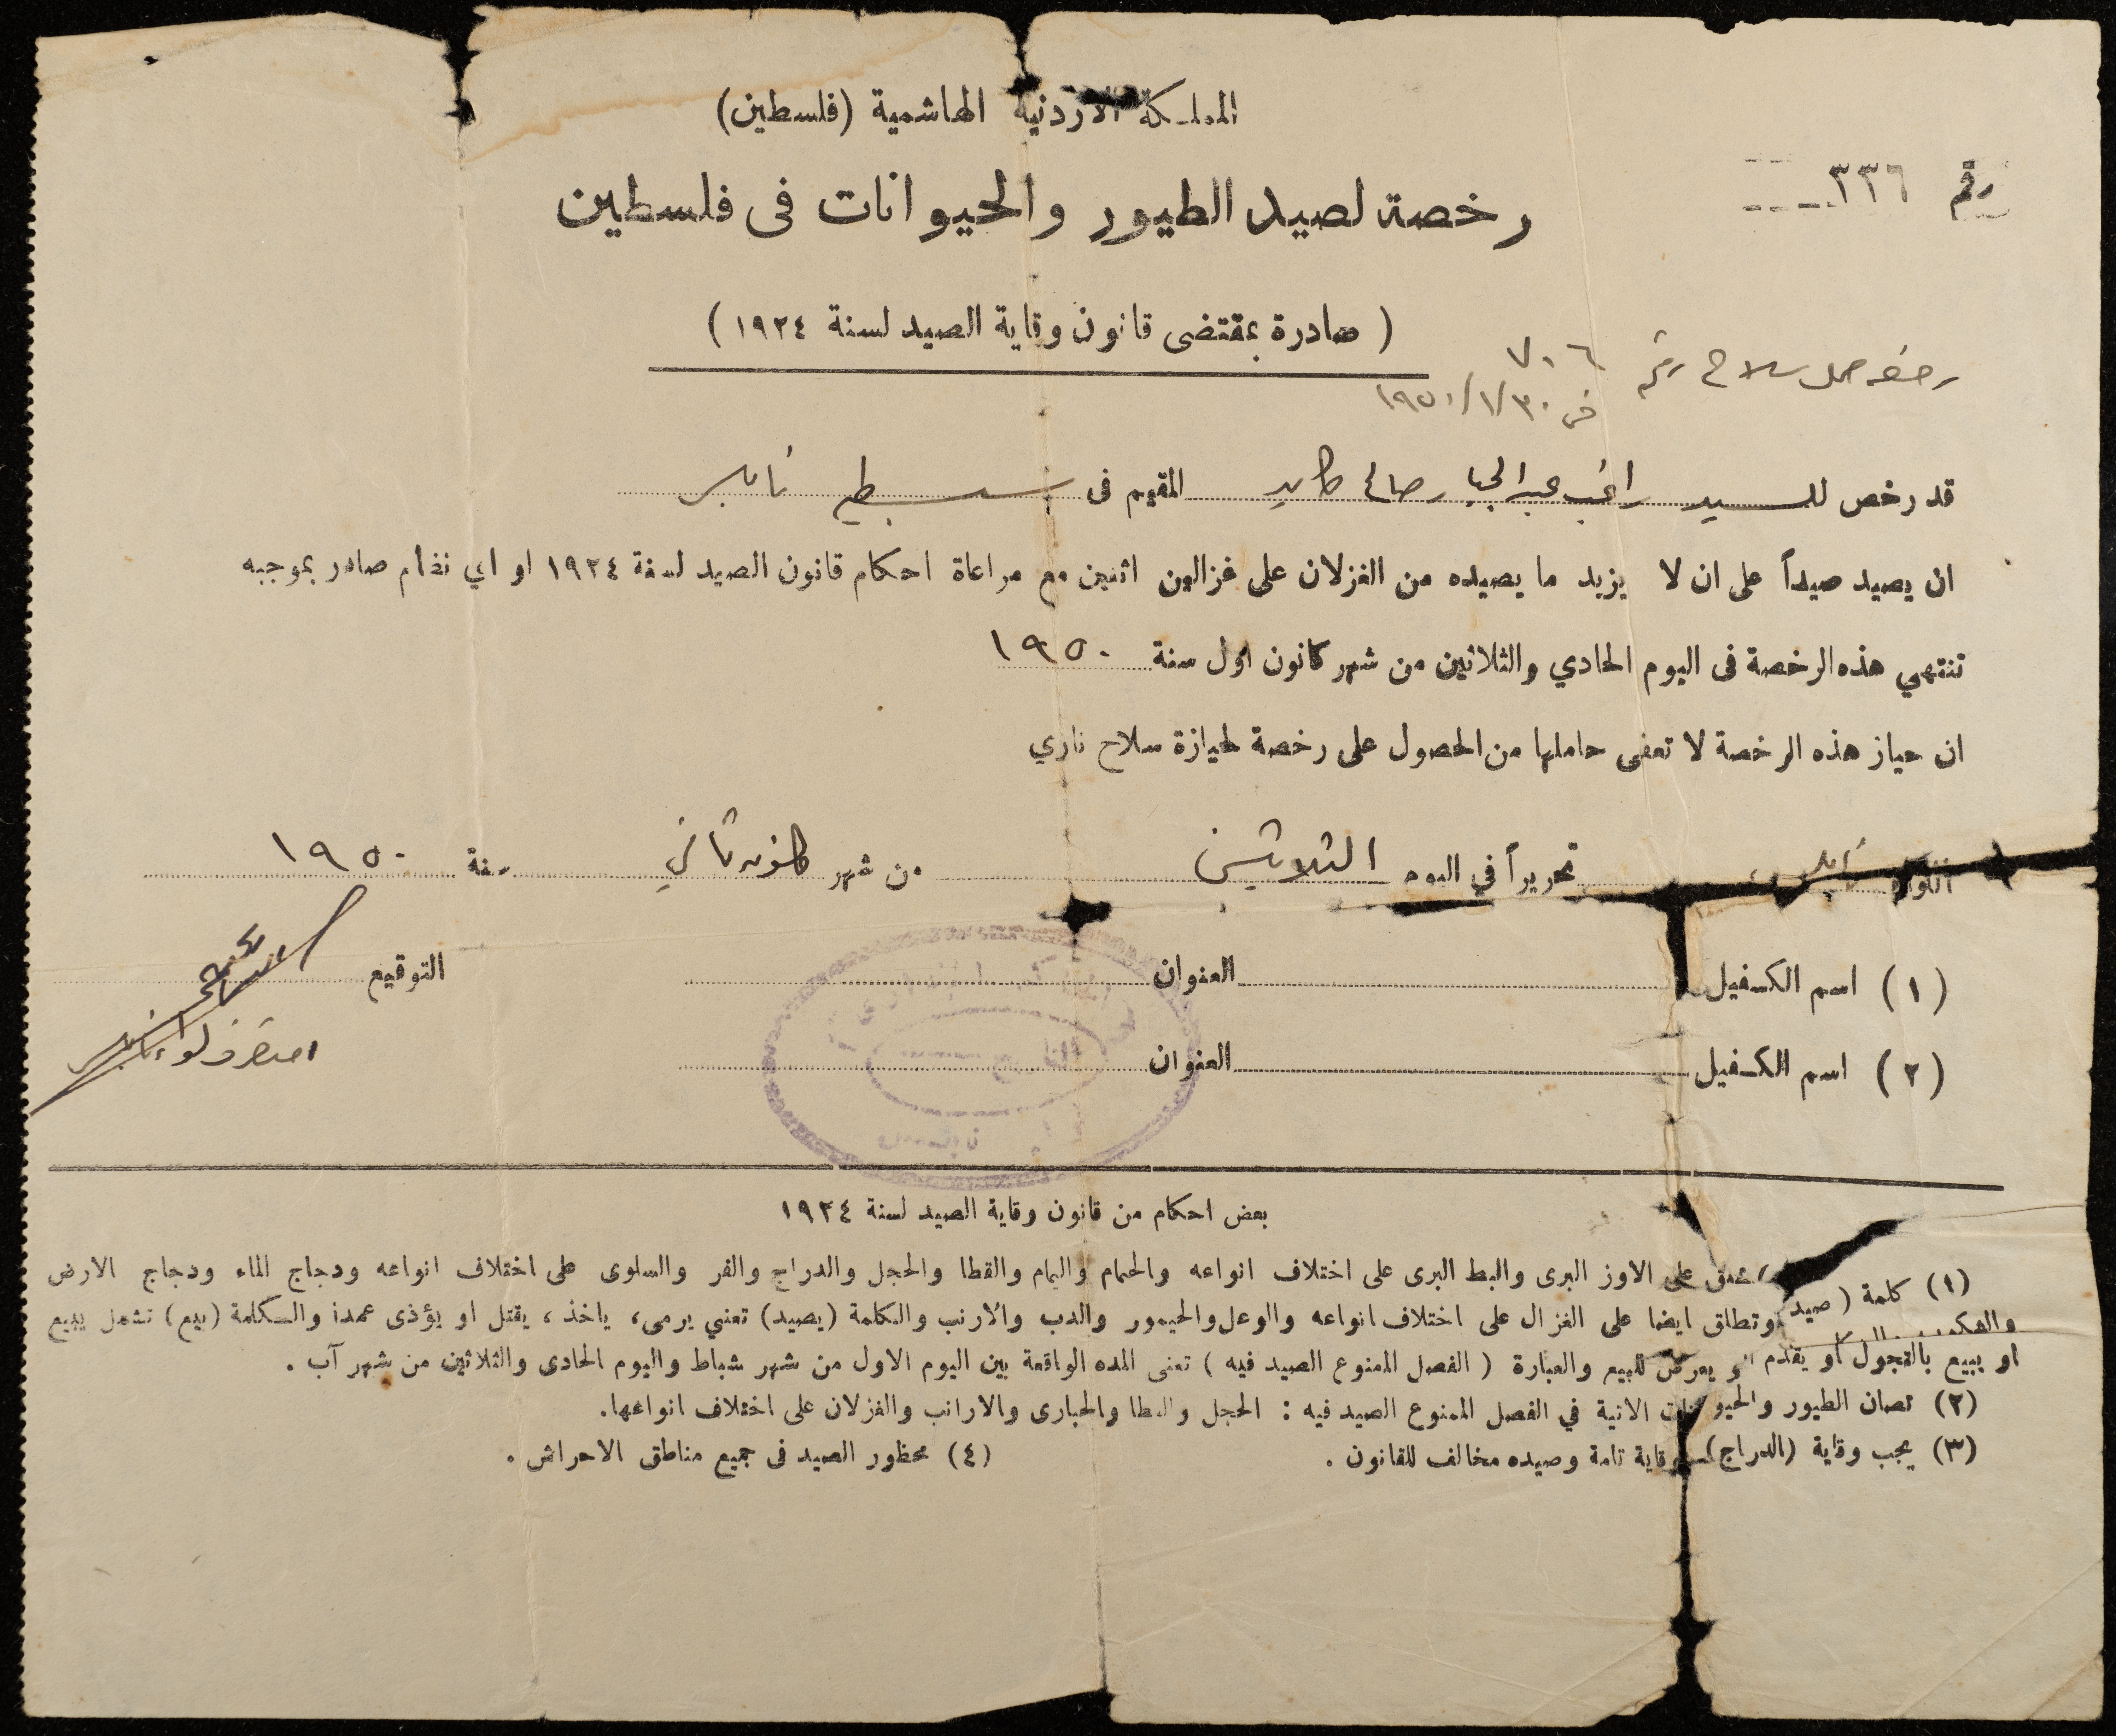 المملكة الاردنية الهاشمية (فلسطين)
رقم ٣٣٦
رخصة لصيد الطيور والحيوانات فى فلسطين
( صادرة بمقتضى قانون وقاية الصيد لسنة ١٩٢٤ )
رخصة حمل سلاح رقم ٧٠٦
في ١٩٥٠/١/٣٠
قد رخص للسيد راغب عبد الجبار صالح كايد المقيم فى سبسطيه نابلس
ان يصيد صيداً على ان لا يزيد ما يصيده من الغزلان على غزالين اثنين مع مراعاة احكام قانون الصيد لسنة ١٩٢٤ او اي نظام صادر بموجبه
تنتهي هذه الرخصة فى اليوم الحادي والثلاثين من شهر كانون اول سنة ١٩٥٠
ان حياز هذه الرخصة لا تعفى حاملها من الحصول على رخصة لحيازة سلاح ناري
نابلس تحريراً في اليوم الثلاثين من شهر كانون ثاني سنة ١٩٥٠
(١) اسم الكفيل العنوان التوقيع
متصرف لواء نابلس
(٢) اسم الكفيل العنوان
بعض احكام من قانون وقاية الصيد لسنة ١٩٢٤
(١) كلمة (صيد) على الاوز البرى والبط البرى على اختلاف انواعه والحمام واليمام والقطا والحجل والدراج والفر والسلوى على اختلاف انواعه ودجاج الماء ودجاج الارض
وتطلق ايضا على الغزال على اختلاف انواعه والوعل واليحمور والدب والارنب والكلمة (يصيد) تعني يرمى، ياخذ، يقتل او يؤذى عمدا والكلمة (بيع) تشمل يبيع
او يبيع بالتجول او يقدم او يعرض للبيع والعبارة ( الفصل الممنوع الصيد فيه ) تعنى المده الواقعة بين اليوم الاول من شهر شباط واليوم الحادى والثلاثين من شهر آب .
(٢) تصان الطيور والحيوانات الاتية في الفصل الممنوع الصيد فيه : الحجل والقطا والحبارى والارانب والغزلان على اختلاف انواعها.
(٣) يجب وقاية (الدراج) وقاية تامة وصيده مخالف للقانون .
(٤) محظور الصيد فى جميع مناطق الاحراش .